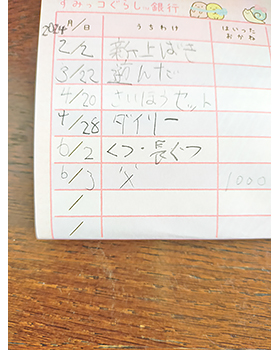 すみっコぐらし 銀行
2024年 月/日 うちわけ はいったおかね
2/2 新上ばき
3/22 遊んだ
4/20 さいほうセット
4/28 ダイリー
6/2 くつ・長ぐつ
6/3 〃 1000
/
/